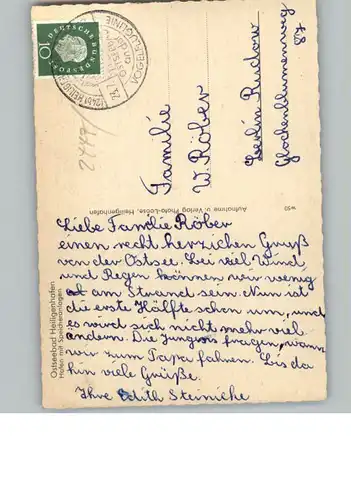 10
DEUTSCHE BUNDESPOST
VOGELFLUGLINIE
2447
Familie
W. Röber
Berlin Rudow
Glockenblumenweg
87
Aufnahme u. Verlag Photo-Loose, Heiligenhafen
Ostseebad Heiligenhafen
Hafen mit Speicheranlagen
Liebe Familie Röber
einen recht herzichen Gruß
von der Ostsee. Bei viel Wind
und Regen können wir wenig
am Strand sein. Nun ist
die erste Hälfte schon um, und
es wird sich nicht mehr viel
ändern. Die Jungens fragen, wann
wir zum Papa fahren. Bis da
hin viele Grüße.
Ihre Edith Steinicke